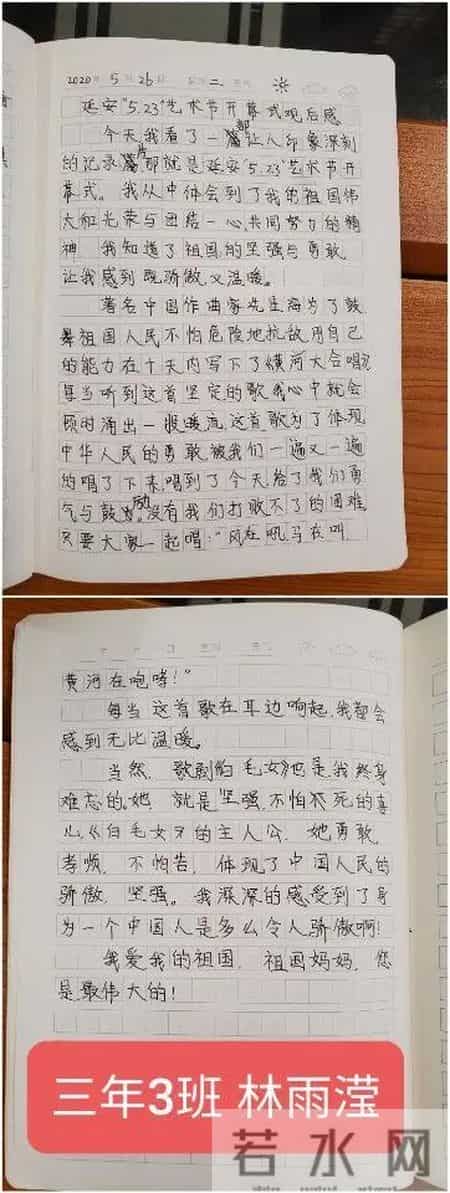 2020年 5月 26日 星期 二
延安"5.23"艺术节开幕式观后感
今天我看了一部让人印象深刻
的记录片那就是延安"5.23"艺术节开
幕式。我从中体会到了我的祖国伟
大和光荣与团结一心,共同努力的精
神 我知道了祖国的坚强与勇敢,
让我感到既骄傲,又温暖。
著名中国作曲家冼星海为了鼓
舞祖国人民不怕危险地抗敌,用自己
的能力在十天内写下了《黄河大合唱》
每当听到这首坚定的歌我心中就会
顿时涌出一股暖流,这首歌为了体现
中华人民的勇敢,被我们一遍又一遍
的唱了下来,唱到了今天给了我们勇
气与鼓励,没有我们打败不了的困难,
只要大家一起唱:"风在吼,马在叫,
黄河在咆哮!"
每当这首歌在耳边响起,我都会
感到无比温暖。
当然,歌剧《白毛女》也是我终身
难忘的,她 就是坚强,不怕死的喜
儿《白毛女》的主人公,她勇敢,
孝顺,不怕苦,体现了中国人民的
骄傲,坚强。我深深的感受到了身
为一个中国人是多么令人骄傲啊!
我爱我的祖国,祖国妈妈,您
是最伟大的!
三年3班 林雨滢
若水网